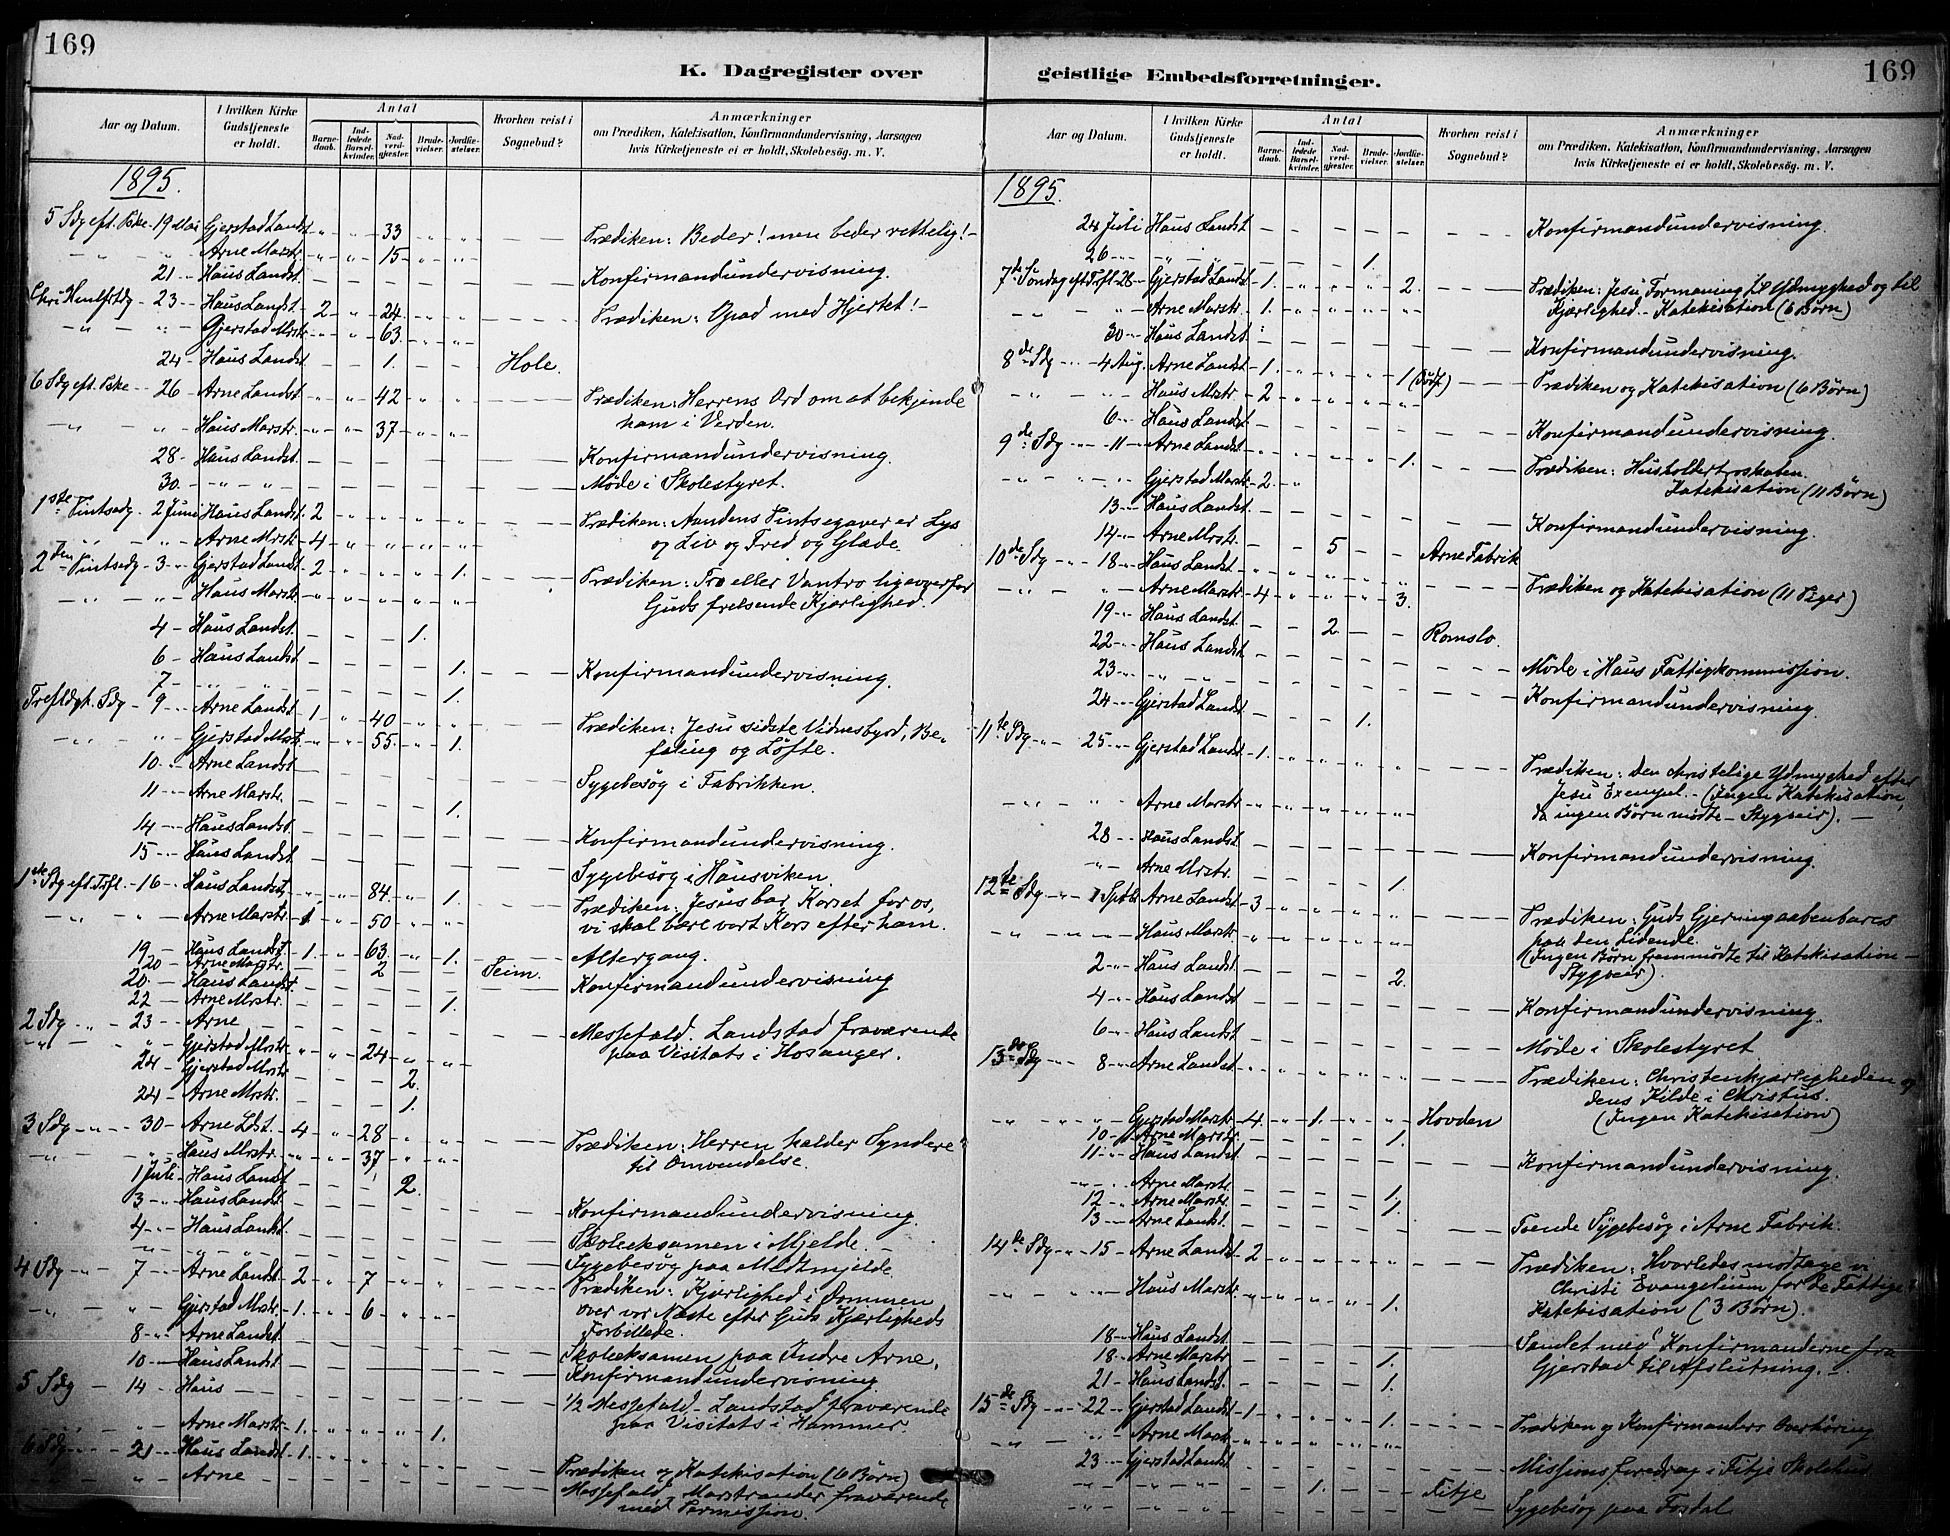 169
K. Dagregister over
Aar og Datum.
I hvilken Kirke Gudstjeneste er holdt.
Antal
Barne-daab.
Ind-ledede Barsel-kvinder.
Nad-verd-gjester.
Brude-vielser.
Jordfæ-stelser.
Hvorhen reist i Sognebud?
Anmærkninger
om Prædiken, Katekisation, Konfirmandundervisning, Aarsagen
hvis Kirketjeneste ei er holdt, Skolebesøg. m. V.
1895.
5 Sdg eft. Paske - 19 Mai Gjerstad Landst. „ „ 33 „ „ — Prædiken: Beder! men beder rettelig! -
„ „ Arne Marstr. „ „ 15 „ „
21 - Haus Landst. — Konfirmandundervisning.
Chri Himlfrtdg - 23 - Haus Landst. 2 „ 24 „ „ — Prædiken: Opad med Hjertet! -
„ „ Gjerstad Mrstr. „ „ 63. „ „
24 - Haus Landst. — 1. — Hole.
6 Sdg eft. Paske - 26 - Arne Landst. „ „ 42 „ „ — Prædiken: Herrens Ord om at bekjende
ham i Verden.
„ „ Haus Marstr. „ „ 37 „ „
28 - Haus Landst. — Konfirmandundervisning.
30. - „ „ — Møde i Skolestyret.
1ste Pintsedg. 2 Juni Haus Landst. 2 „ „ „ „ — Prædiken: Aandens Pintsegaver er Lys
og Liv og Fred og Glæde.
„ „ Arne Mrstr. 4 „ „ „ „
2den Pintsedg - 3 „ Gjerstad Landst. 2 „ „ „ 1. — Prædiken: Tro eller Vantro ligeoverfor
Guds frelsende Kjærlighed.
„ „ Haus Marstr. „ „ „ „ „
4 - Haus Landst. — 1. —
6 - Haus Landst. — 1. — Konfirmandundervisning.
7 - „ „ — 1.
Trefldgh. Sdg - 9 - Arne Landst. 1 „ 40 „ „ — Prædiken: Jesu sidste Vidnesbyrd, Be-
faling og Løfte.
„ „ Gjerstad Mrstr. „ „ 55. „ 1.
10 - Arne Landst. — Sygebesøg i Fabrikken.
11 - Arne Marstr. — 1.
14 - Haus Landst. — Konfirmandundervisning.
15 - Haus Landst. — Sygebesøg i Hausviken.
1ste Sdg eft. Trefl. - 16 - Haus Landst. „ „ 84. „ 1. — Prædiken: Jesus bar Korset for os,
vi skal bære vort Kors efter ham.
„ „ Arne Marstr. 1 „ 50 „ „
19 - Haus Landst. 1. „ 63. „ 1. — Altergang.
20 - Arne Marstr. — 2 — Seim.
20. - Haus Landst. — Konfirmandundervisning
22 - Arne Mrstr. — 1.
2 Sdg „ 23 - Arne — Messefald. Landstad fraværende
paa Visitats i Hosanger.
„ „ Gjerstad Mrstr. „ „ 24 „ „
24 - Gjerstad Mrstr. — 2.
24 - Arne Mrstr. — 1.
3 Sdg „ 30 - Arne Ldst. 4 „ 28 „ „ — Prædiken: Herren kalder Syndere
til Omvendelse.
„ „ Haus Mrstr. „ „ 37 „ „
1 Juli - Haus Landst — 2.
3 - Haus Landst. — Konfirmandundervisning.
4 - Haus Landst. — Skoleeksamen i Mjelde. -
„ „ — Sygebesøg paa Midtmjelde.
4 Sdg „ 7 - Arne Landst 2 „ 7 „ „ — Prædiken: Kjærlighed i Dommen
over vor Næste efter Guds Kjærligheds
Forbillede.
„ „ Gjerstad Mrstr. 1. „ 6 „ „
8 - Arne Landst. — Skoleeksamen paa Indre Arne.
10 - Haus Landst. — Konfirmandundervisning.
5 Sdg - 14 - Haus — 1/2 Messefald - Landstad fraværende
paa Visitats i Hammer.
„ Arne Marstr. 1. „ „ 1. „
6 Sdg „ 21 - Haus Landst. 1. — Prædiken og Katekisation (6 Børn)
„ Arne — Messefald, Marstrander fraværende
med Permission.
geistlige Embedsforretninger.
169
Aar og Datum.
I hvilken Kirke Gudstjeneste er holdt.
Antal
Barne-daab.
Ind-ledede Barsel-kvinder.
Nad-verd-gjester.
Brude-vielser.
Jordfæ-stelser.
Hvorhen reist i Sognebud?
Anmærkninger
om Prædiken, Katekisation, Konfirmandundervisning, Aarsagen
hvis Kirketjeneste ei er holdt, Skolebesøg. m. V.
1895.
24 Juli Haus Landst. — Konfirmandundervisning.
26 - „ „ — 1.
7de Søndag eft Trfl. 28 - Gjerstad Landst. 1. „ „ „ 2. — Prædiken: Jesu Formaning til Ydmyghed og til
Kjærlighed. - Katekisation (6 Børn)
„ „ Arne Marstr. 1. „ „ „ „
30 - Haus Landst. — Konfirmandundervisning.
8de Sdg 4 Aug. Arne Landst. 1. „ „ „ 1 — Prædiken og Katekisation (6 Børn)
„ „ Haus Mrstr. 2 „ „ „ „
6 - Haus Landst. — Konfirmandundervisning.
9de Sdg 11 - Arne Landst. „ „ „ „ 1. — Prædiken: Husholdertroskaben.
Katekisation (11 Børn)
„ „ Gjerstad Marstr. 2. „
13 - Haus Landst. — Konfirmandundervisning.
14 - Arne Mrstr. — 5 — Arne Fabrik
10de Sdg „ 18 - Haus Landst. „ „ „ „ „ — Prædiken og Katekisation (11 Piger)
„ „ Arne Marstr. 4 „ „ „ 3.
19 - Haus Landst. — 2 — Romslo.
22 - Haus Landst. — Møde i Haus Fattigkommission.
23 - „ „ — Konfirmandundervisning.
24 - Gjerstad Landst. — 1.
11te Sdg „ 25 - Gjerstad Landst. 1. „ „ „ „ — Prædiken: Den christelige Ydmyghed efter
Jesu Exempel. - (Ingen Katekisation,
da ingen Børn mødte - Stygveir). -
„ „ Arne Mrstr. „ „ „ „ „
28 - Haus Landst. — Konfirmandundervisning.
„ Arne Mrstr. — 1.
12te Sdg „ 1 Sptbr. Arne Landst. 3 „ „ „ „ — Prædiken: Guds Gjerning aabenbares
paa den Lidende.
(Ingen Børn fremmødte til Katekisation -
Stygveir).
„ „ Haus Marstr. „ „ „ „ „
2 - Haus Landst. — 2.
4 - Haus Landst. — Konfirmandundervisning.
6 - Haus Landst. — Møde i Skolestyret.
13de Sdg 8 - Arne Landst. „ „ „ „ „ — Prædiken: Christenkjærligheden og
dens Kilde i Christus.
(Ingen Katekisation)
„ „ Gjerstad Marstr. 4 „ 1. „ „ Hovden
10 - Arne Marstr. — 1.
11 - Haus Landst. — Konfirmandundervisning.
„ Arne Marstr. — 1.
12 - Arne Marstr. — 1.
13 - Arne Landst. — Tvende Sygebesøg i Arne Fabrik.
14de Sdg „ 15 - Arne Landst. 2 „ „ „ „ — Prædiken: Hvorledes modtage vi
Christi Evangelium for de Fattige?
Katekisation (3 Børn).
„ „ Haus Marstr. „ „ „ „ 1.
18 - Haus Landst. — Samlet med Konfirmanderne fra
Gjerstad til Afslutning. -
18 - Arne Marstr. — 1.
21 - Haus Landst. — 1.
15de Sdg „ 22 - Gjerstad Landst. 1 „ „ „ 1. — Prædiken og Konfirmanters Overhøring
„ „ Arne Marstr. „ „ „ „ „
23 - Gjerstad Landst. — Missionsforedrag i Fitje Skolehus
„ „ — 1. — Fitje
„ „ — Sygebesøg paa Fosdal